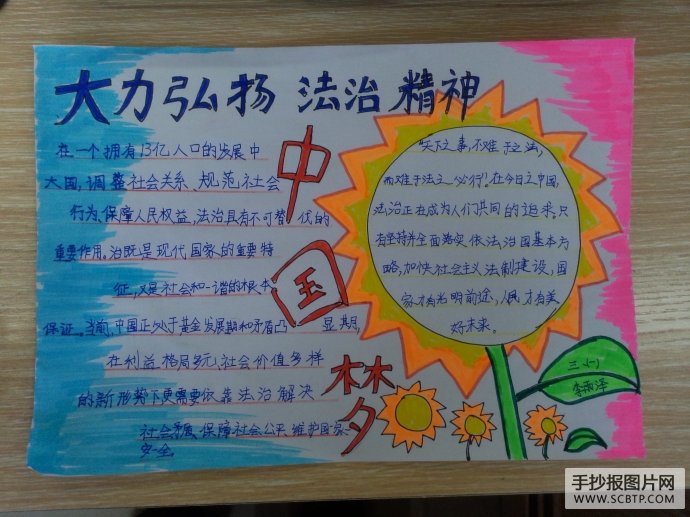 大力弘扬 法治 精神
在一个拥有13亿人口的发展中
大国,调整社会关系、规范社会
行为,保障人民权益,法治具有不可替代的
重要作用。治既是现代国家的重要特
征,又是社会和谐的根本
保证。当前,中国正处于基金发展期和矛盾凸显期,
在利益格局多元,社会价值多样
的新形势下更需要依靠法治解决
社会矛盾、保障社会公平、维护国家
安全。
中
国
梦
"天下之事,不难于立法,
而难于法之必行"。在今日之中国,
法治正在成为人们共同的追求。只
有坚持并全面落实依法治国基本方
略,加快社会主义法制建设,国
家才有光明前途,人民才有美
好未来。
三小1
李雨泽
手抄报图片网
WWW.SCBTP.COM